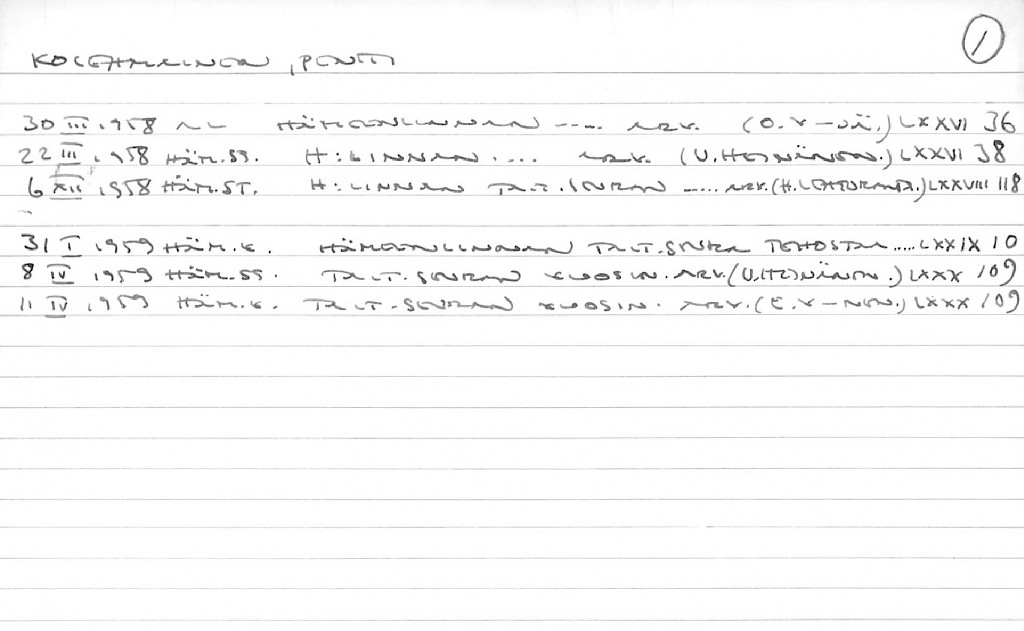 1
KOLEHMAINEN, PENTTI
30 III 1958 AL HÄMEENLINNAN ..... ARV. (O.V-JÄ.) LXXVI 36
22 III 1958 HÄM.SS. H:LINNAN .... ARV. (U.HEINÄNEN.) LXXVI 38
6 XII 1958 HÄM.ST. H:LINNAN TAIT.SEURAN ..... ARV.(H.LEHTORANTA.) LXXVIII 118
31 I 1959 HÄM.K. HÄMEENLINNAN TAIT.SEURA TEHOSTAA ..... LXXIX 10
8 IV 1959 HÄM.SS. TAIT.SEURAN VUOSIN. ARV.(U.HEINÄNEN.) LXXX 109
11 IV 1959 HÄM.K. TAIT.SEURAN VUOSIN. ARV.(E.V-NEN.) LXXX 109